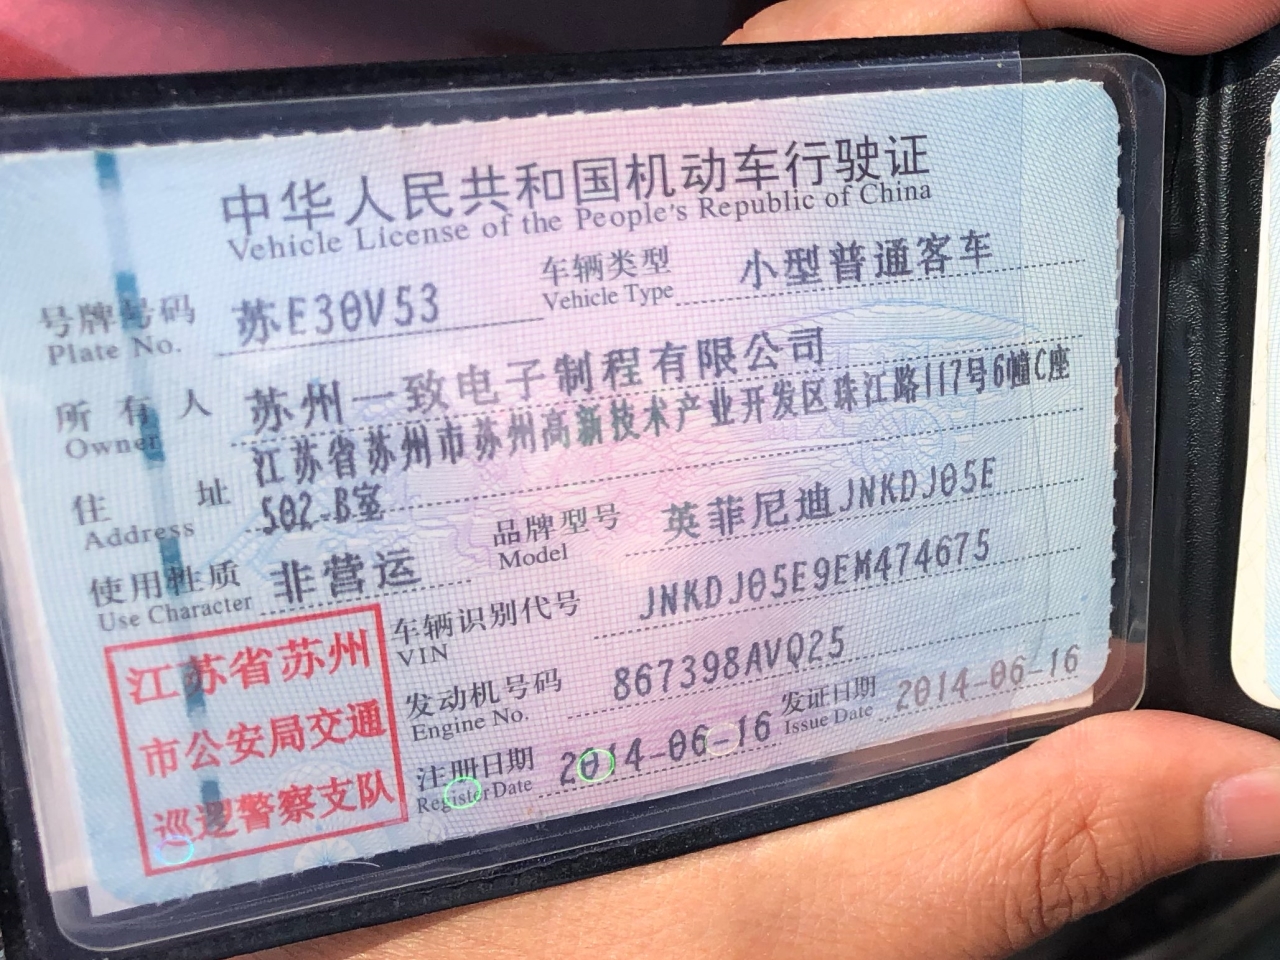 中华人民共和国机动车行驶证
Vehicle License of the People's Republic of China
号牌号码 苏E30V53 车辆类型 小型普通客车
Plate No. Vehicle Type
所有人 苏州一致电子制程有限公司
Owner
住址 江苏省苏州市苏州高新技术产业开发区珠江路117号6幢C座
Address 502-B室
使用性质 非营运 品牌型号 英菲尼迪JNKDJ05E
Use Character Model
车辆识别代号 JNKDJ05E9EM474675
VIN
发动机号码 867398AVQ25
Engine No.
注册日期 2014-06-16 发证日期 2014-06-16
Register Date Issue Date
江苏省苏州
市公安局交通
巡逻警察支队